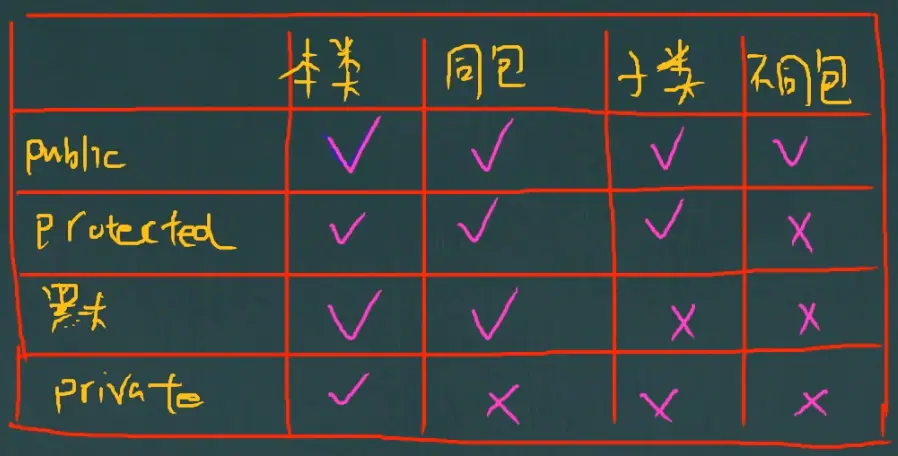 本类 同包 子类 不同包
public ✓ ✓ ✓ ✓
protected ✓ ✓ ✓ ×
✓ ✓ × ×
private ✓ × × ×